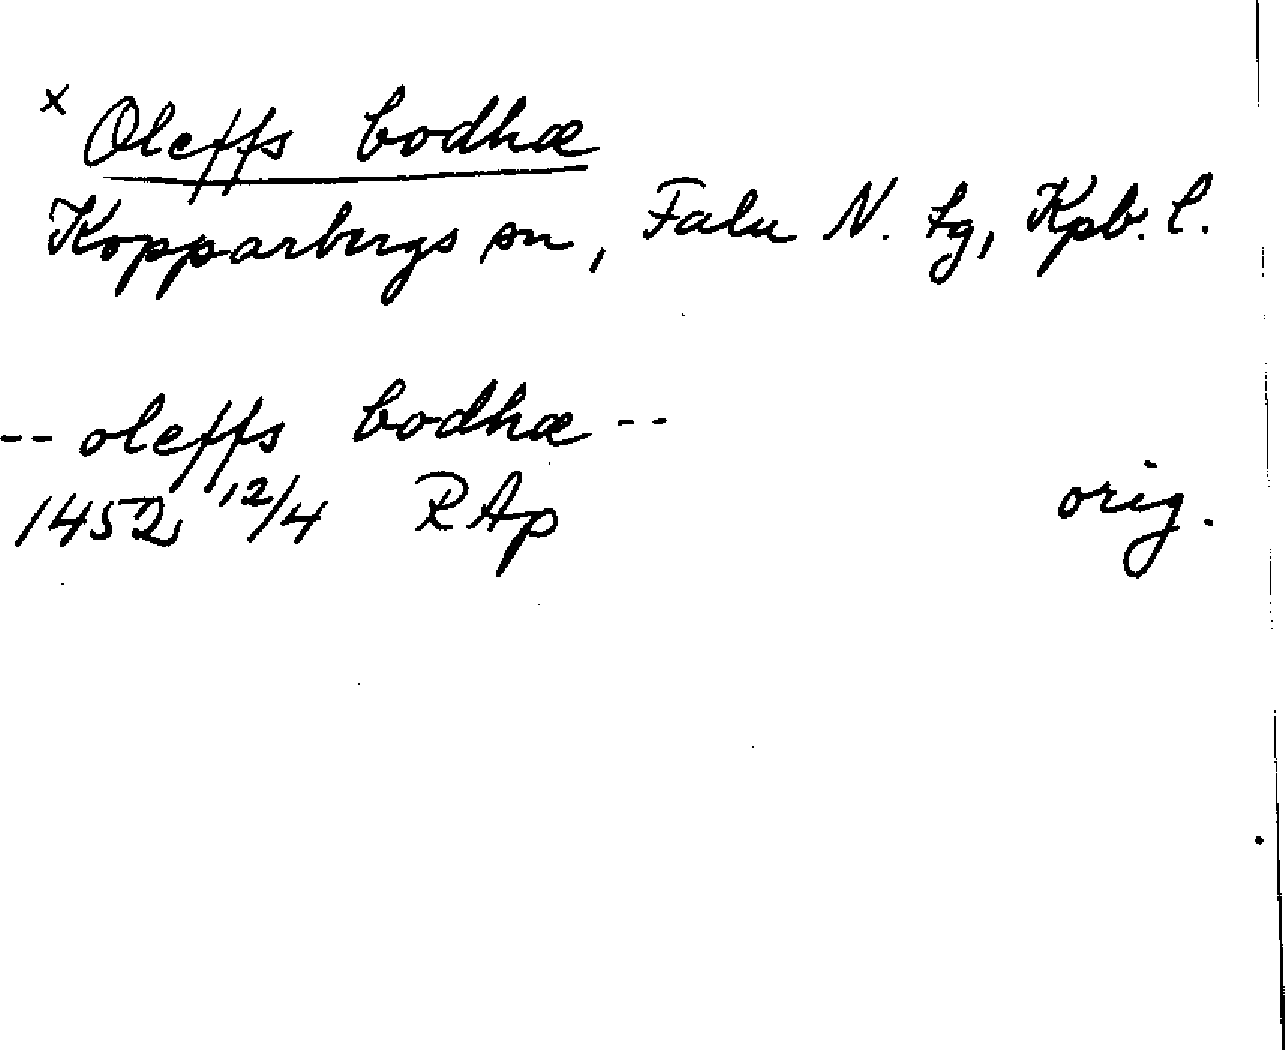 x Oleffs bodhæ
Kopparbergs sn, Falu N. tg, Kpb. l.
-- oleffs bodhæ --
1452 12/4 RAp orig.